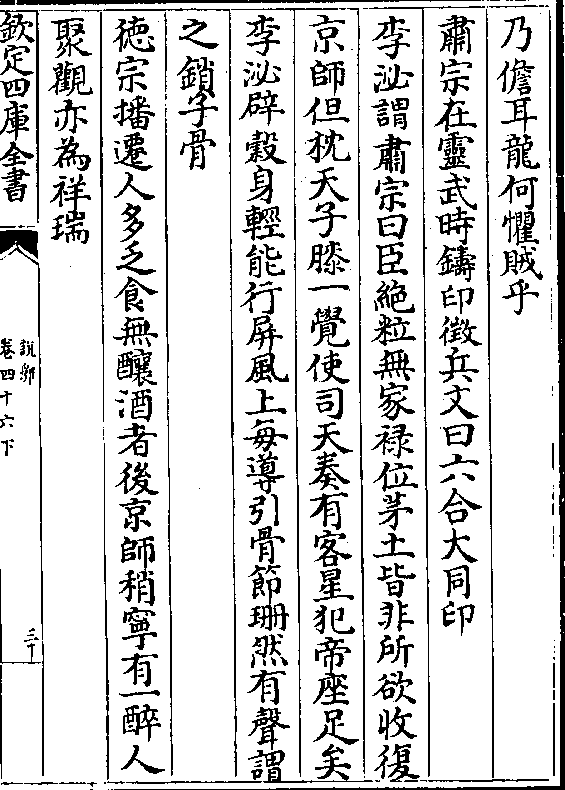 乃儋耳龍何懼賊乎
肅宗在靈武時鑄印徴兵文曰六合大同印
李泌謂肅宗曰臣絶粒無家禄位茅土皆非所欲收復
京師但枕天子膝一覺使司天奏有客星犯帝座足矣
李泌辟穀身輕能行屏風上每導引骨節珊然有聲謂
之鎖子骨
徳宗播遷人多乏食無釀酒者後京師稍寧有一醉人
聚觀亦為祥瑞
欽定四庫全書
說郛
卷四十六下
三十